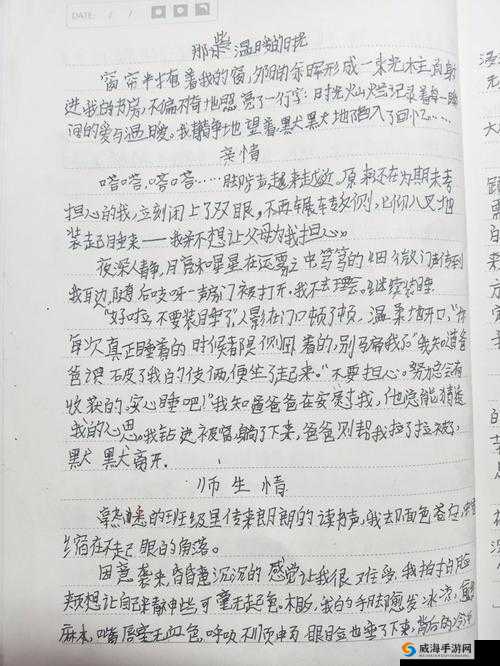 DATE
那些温暖的时光
窗帘半掩着我的窗,夕阳的余晖形成一束光柱,斜射
进我的书房,不偏不倚地照亮了一行字:时光火山烂记录着每一瞬
间的爱与温暖。我静静地望着,默默地陷入了回忆……
亲情
嗒嗒,嗒嗒……脚步声越来越近,原本还在为期末考
担心的我,立刻闭上了双眼,不再辗转
装起睡来——我亲不想让父母为我担心。
夜深人静,月亮和星星在云雾之中 的细微门声传到
我耳边,随后吱呀一声房门被打开。我不去理会,继续装睡。
"好啦,不要装睡了"人影在门口顿了顿,温柔地开口,"你
每次真正睡着的时候都是侧卧着的,别再骗我了"我知道爸
爸识破了我的伎俩,便坐了起来。"不要担心。努力总会有
收获的,安心睡吧!"我知道爸爸在安慰我,他总能猜透
我的心思。我钻进被窝,躺了下来,爸爸则帮我拉了拉被子,
默默离开。
师生情
熟悉的班级里传来朗朗的读书声,我去面色苍白,
缩在不起眼的角落。
困意袭来,昏昏沉沉的感觉让我很难受,我拍拍脸
颊想让自己
麻木,嘴唇毫无血色,呼吸不顺畅,眼睛也垂了下来,背后的冷汗
威海手游网